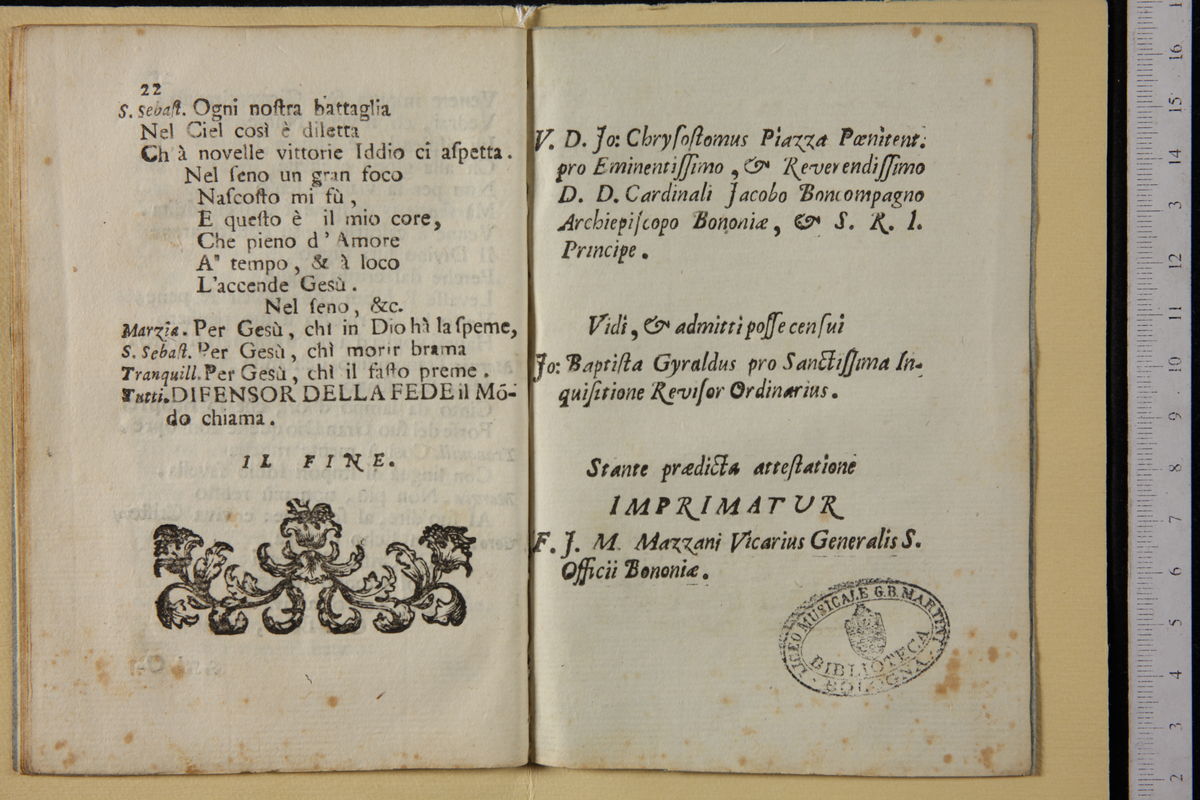 22
S. Sebaſt. Ogni noſtra battaglia
Nel Ciel così è diletta
Ch'à novelle vittorie Iddio ci aſpetta.
Nel ſeno un gran foco
Naſcoſto mi fù,
E queſto è il mio core,
Che pieno d'Amore
A' tempo, & à loco
L'accende Gesù.
Nel ſeno, &c.
Marzia. Per Gesù, chì in Dio hà la ſpeme,
S. Sebaſt. Per Gesù, chì morir brama
Tranquill. Per Gesù, chì il faſto preme.
Tutti. DIFENSOR DELLA FEDE il Mõ-
do chiama.
IL FINE.
V. D. Jo: Chryſoſtomus Piazza Pœnitent.
pro Eminentiſſimo, & Reverendiſſimo
D. D. Cardinali Jacobo Boncompagno
Archiepiſcopo Bononiæ, & S. R. I.
Principe.
Vidi, & admitti poſſe cenſui
Jo: Baptiſta Gyraldus pro Sanctiſſima In-
quiſitione Reviſor Ordinarius.
Stante prædicta atteſtatione
IMPRIMATUR
F. J. M. Mazzani Vicarius Generalis S.
Officii Bononiæ.
LICEO MUSICALE G.B. MARTINI
BIBLIOTECA
BOLOGNA
16
15
14
13
12
11
10
9
8
7
6
5
4
3
2